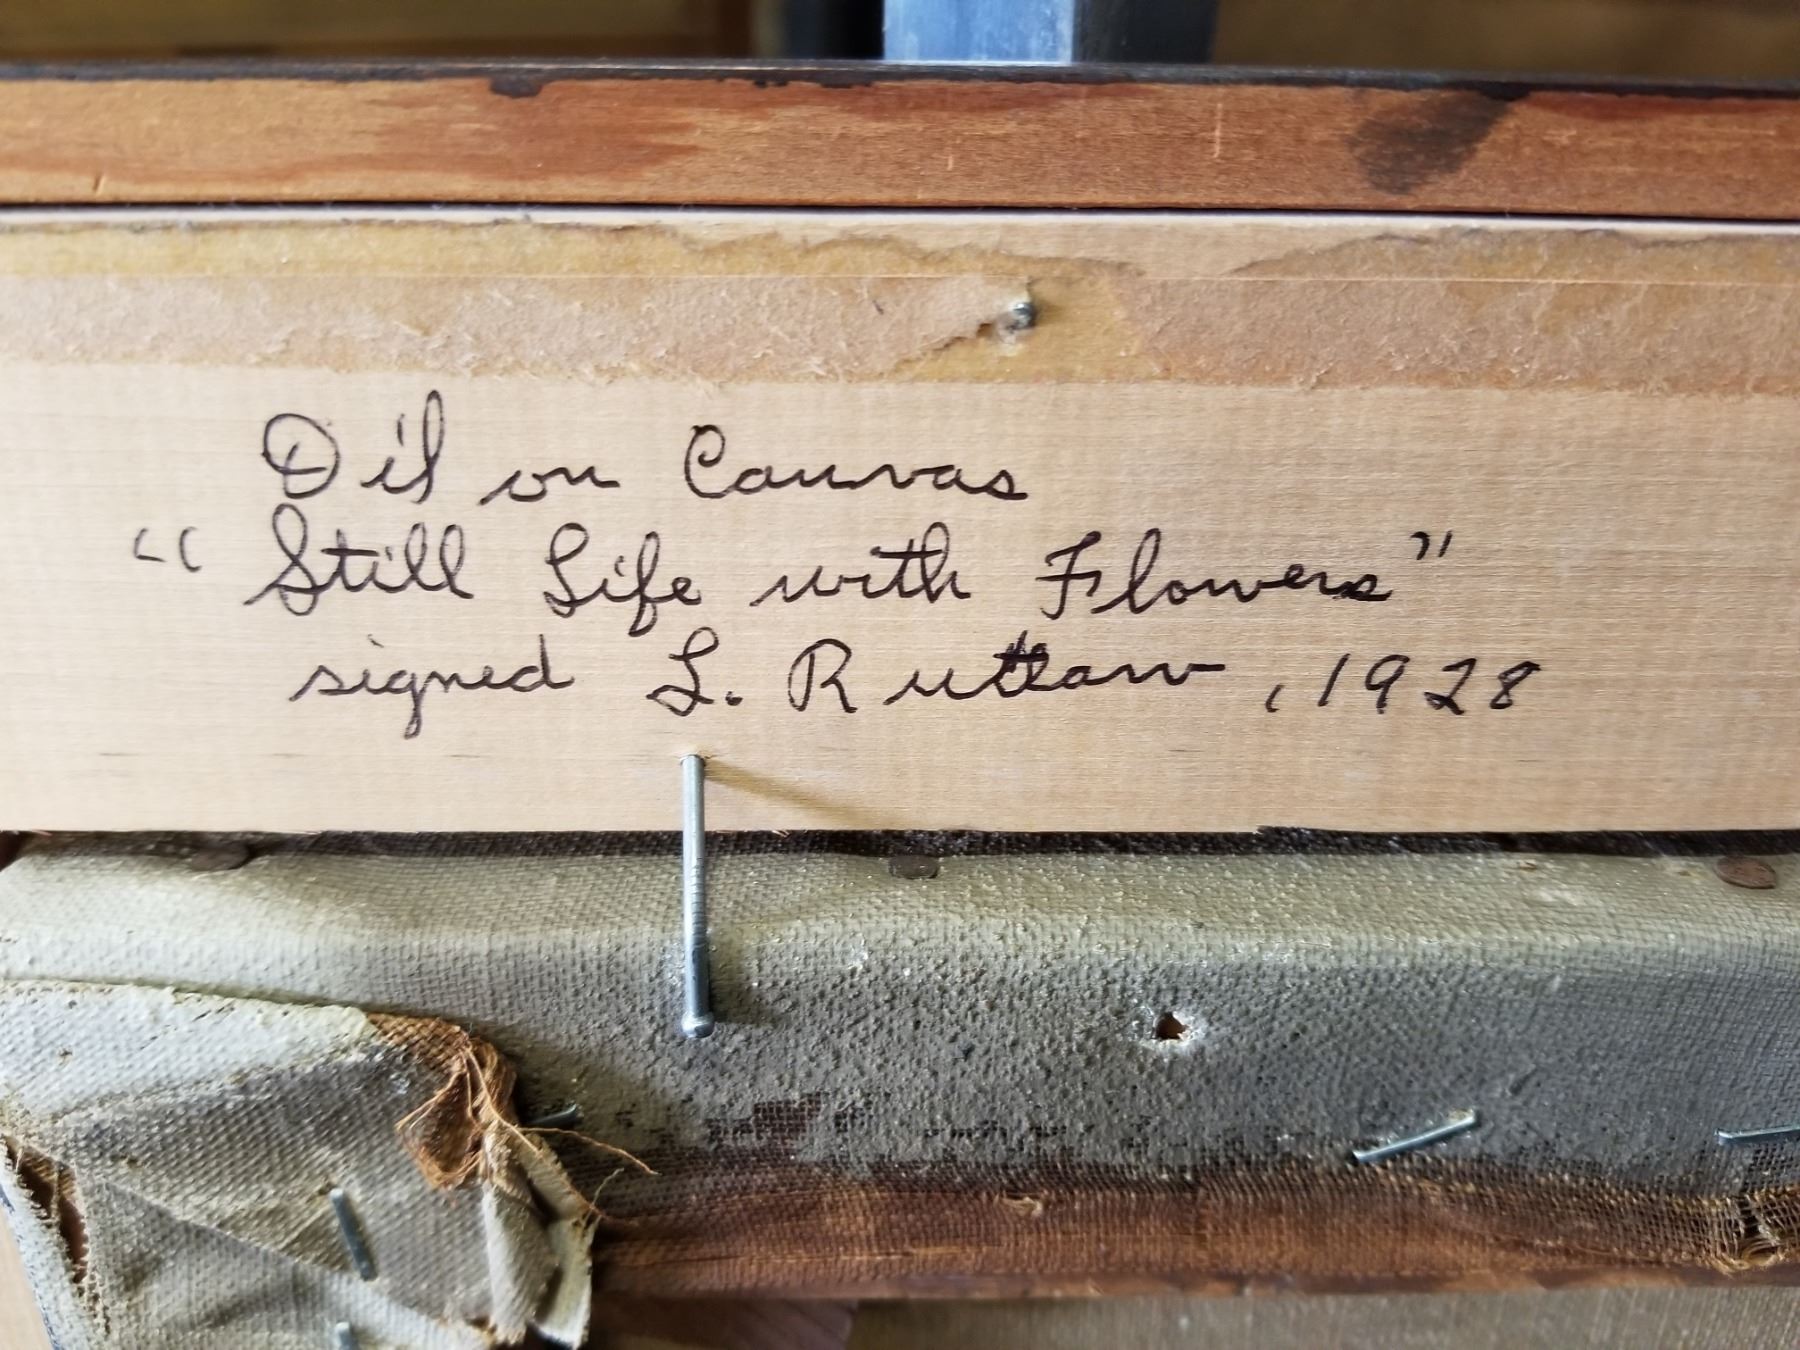 Oil on Canvas
"Still Life with Flowers"
signed L. Ruttaw, 1928